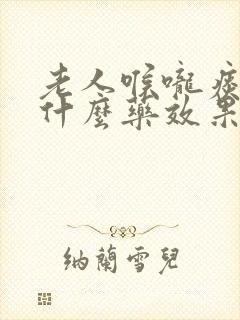 老人喉嚨痰
什麼藥效果
納蘭雪兒